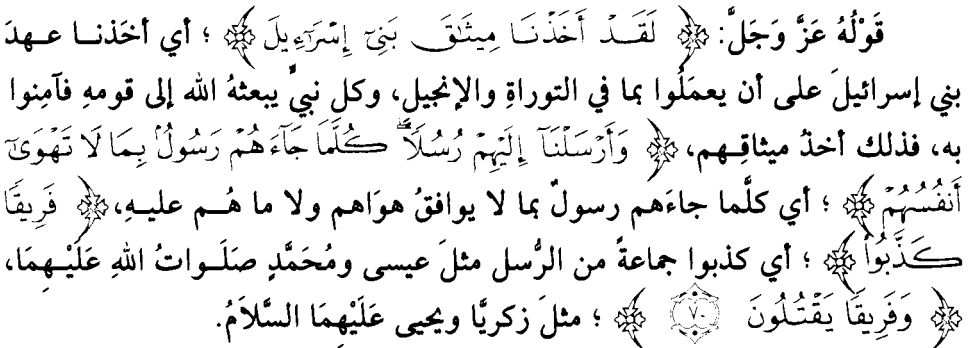 قَوْلُهُ عَزَّ وَجَلَّ: ﴿ لَقَدْ أَخَذْنَا مِيثَاقَ بَنِيٓ إِسْرَٰٓءِيلَ ﴾ ؛ أي أخَذنا عهدَ
بني إسرائيلَ على أن يعمَلُوا بما في التوراةِ والإنجيلِ، وكل نبيٍّ يبعثهُ الله إلى قومهِ فآمِنوا
به، فذلك أخذُ ميثاقِهم، ﴿ وَأَرْسَلْنَآ إِلَيْهِمْ رُسُلًاۖ كُلَّمَا جَآءَهُمْ رَسُولُۢ بِمَا لَا تَهْوَىٰٓ
أَنفُسُهُمْ ﴾ ؛ أي كلَّما جاءَهم رسولٌ بما لا يوافقُ هوَاهم ولا ما هُم عليهِ، ﴿ فَرِيقًا
كَذَّبُوا۟ ﴾ ؛ أي كذبوا جماعةً من الرُّسل مثلَ عيسى ومُحَمَّدٍ صَلَواتُ اللهِ عَلَيْهِمَا،
﴿ وَفَرِيقًا يَقْتُلُونَ ٧٠ ﴾ ؛ مثلَ زكريَّا ويحيى عَلَيْهِمَا السَّلاَمُ.